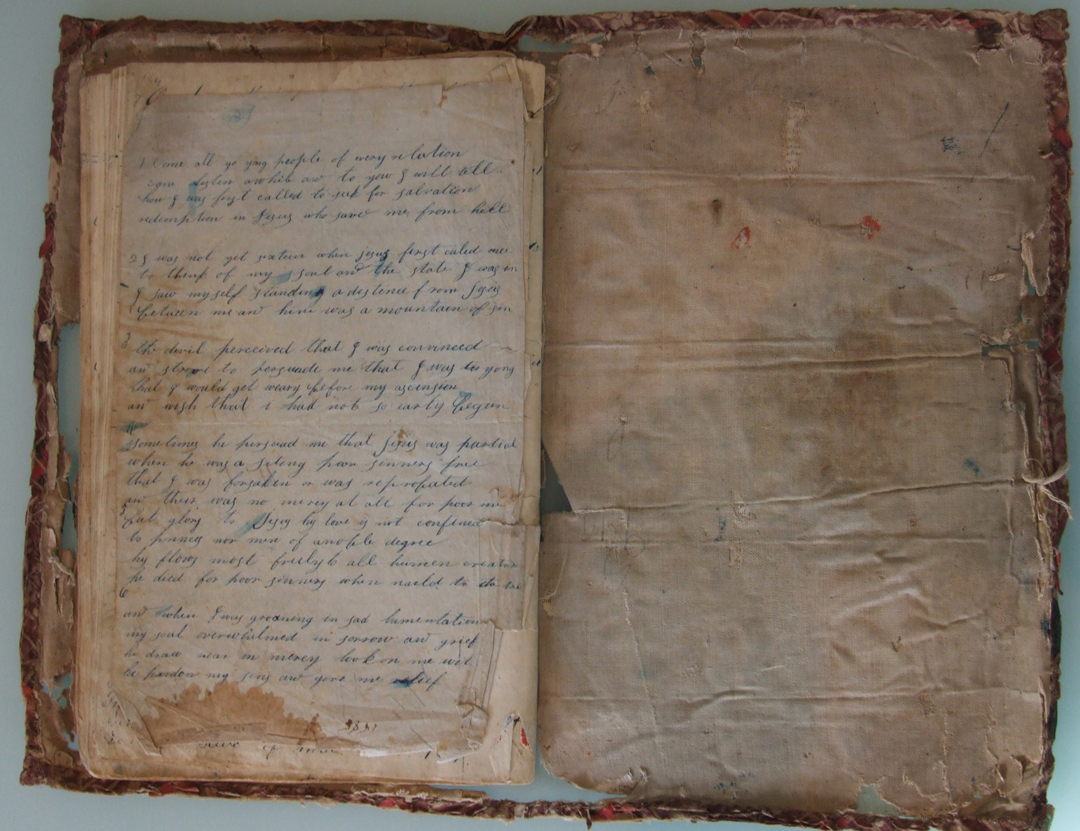 1 Come all ye yong people of evry relation
come listen awhile an to you I will tell
how I was first called to seek for salvation
redemption in Jesus who save me from hell
2 I was not yet sixteen when jesus first caled me
to think of my soul and the state I was in
I saw myself standing a distence from Jesus
between me an him was a mountain of sin
3
the devil perceived that I was convinced
an strove to persuade me that I was to yong
that I would get weary before my ascension
an wish that i had not so early begun
4
sometimes he persuad me that Jesus was partial
when he was a seting poor sinners free
that I was forsaken or was reprobated
an their was no mercy at all for poor me
5
but glory to Jesus his love is not confined
to princes nor men of a noble degree
his flows most freely to all human creatur
he died for poor sinners when naild to the tre
6
and when I was groaning in sad lamentation
my soul overwhelmed in sorrow and grief
he draw near in mercy look on me
he pardon my sins and gave me relief
of